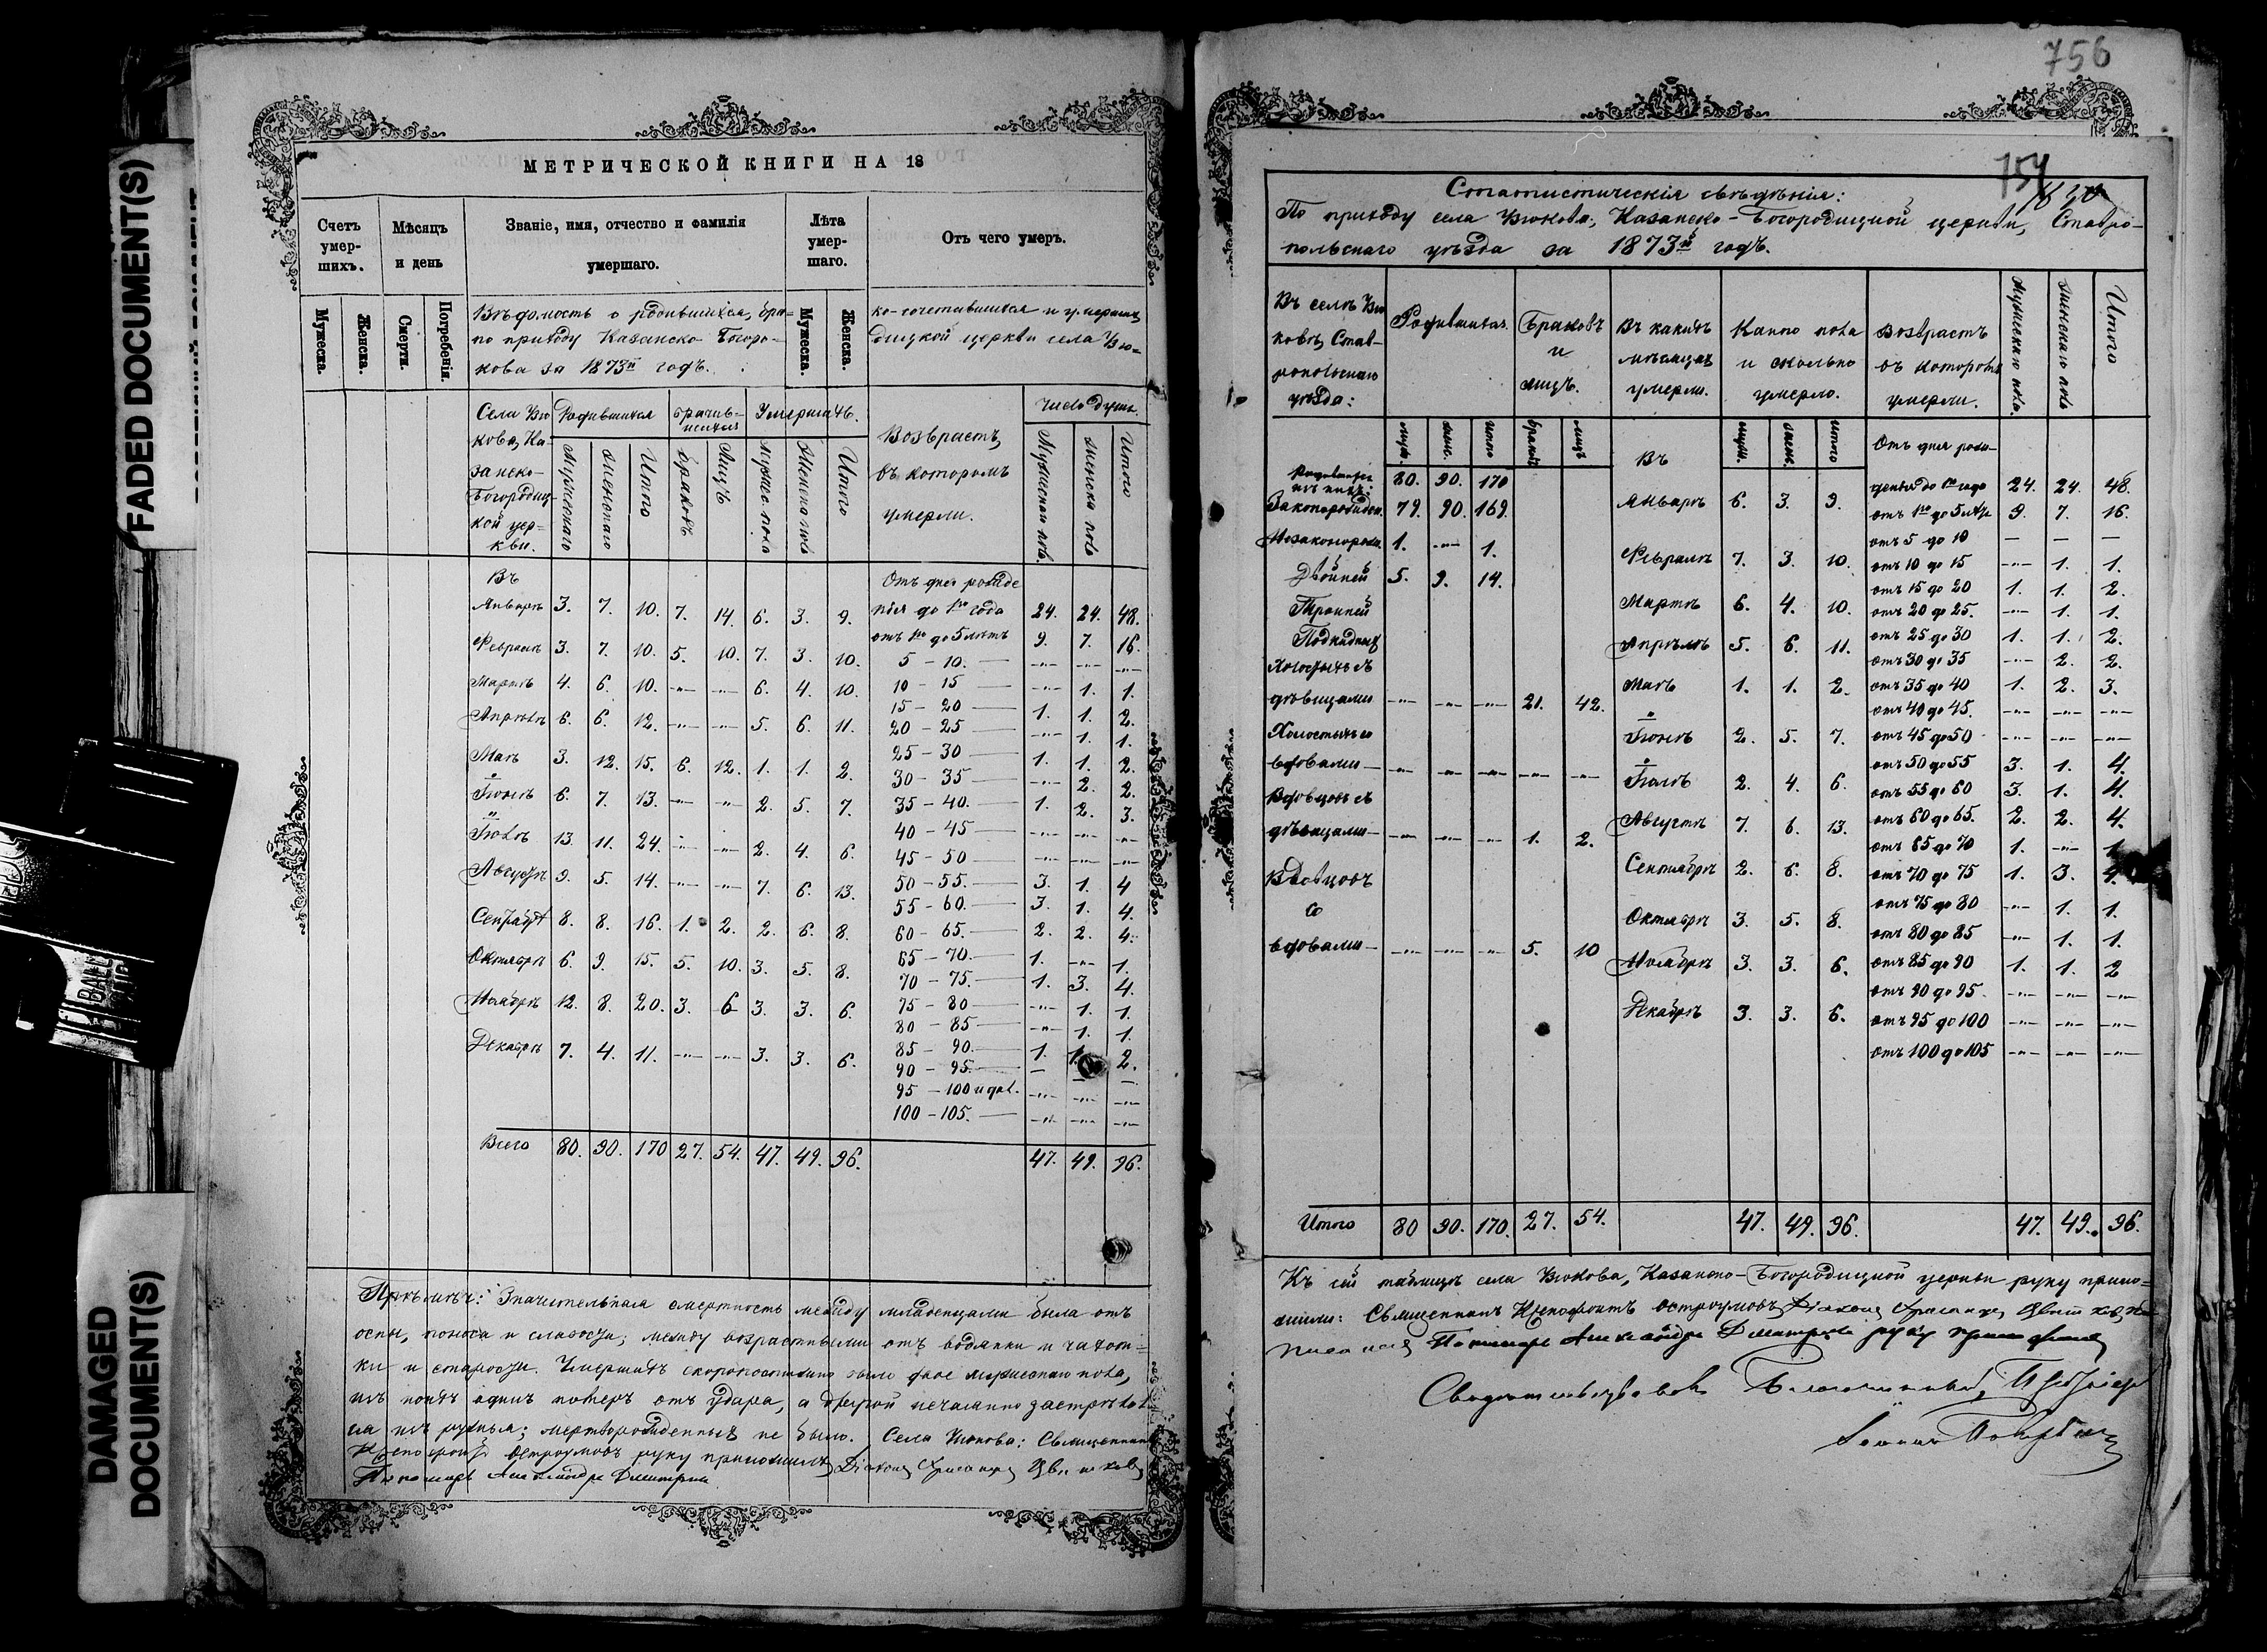 FADED DOCUMENT(S)
DAMAGED
DOCUMENT(S)
МЕТРИЧЕСКОЙ КНИГИ НА 18
Счетъ умер- шихъ.
Мѣсяцъ и день
Званіе, имя, отчество и фамилія умершаго.
Лѣта умер- шаго.
Отъ чего умеръ.
Мужеска. Женска. Смерти. Погребенія. Мужеска. Женска.
Вѣдомость о родившихся, бра- ко-сочетавшихся и умершихъ
по приходу Казанско-Богоро- дицкой церкви села Вью-
кова за 1873й годъ.
Родившихся Умершихъ. Число душъ.
Богородиц- кой цер- кви.
Мужескаго Женскаго Итого браковъ Лицъ Итого
Возврастъ, въ которомъ умерли.
Итого
Въ
Отъ дня рожде
Январѣ 3. 7. 10. 7. 14. 6. 3. 9. нія до 1го года 24. 24. 48.
отъ 1го до 5 лѣтъ 9. 7. 16.
Февралѣ 3. 7. 10. 5. 10. 7. 3. 10.
5 – 10. -"- -"- -"-
Мартѣ 4. 6. 10. -"- -"- 6. 4. 10.
10 – 15 -"- 1. 1.
15 – 20 1. 1. 2.
Апрѣлѣ 6. 6. 12. -"- -"- 5. 6. 11.
20 – 25 -"- 1. 1.
25 – 30 1. 1. 2.
Маѣ 3. 12. 15. 6. 12. 1. 1. 2.
30 – 35 -"- 2. 2.
Іюнѣ 6. 7. 13. -"- -"- 2. 5. 7.
35 – 40. 1. 2. 3.
40 – 45 -"- -"- -"-
Іюлѣ 13. 11. 24. -"- -"- 2. 4. 6.
45 – 50 -"- -"- -"-
Августѣ 9. 5. 14. -"- -"- 7. 6. 13.
50 – 55. 3. 1. 4
55 – 60. 3. 1. 4.
Сентябрѣ 8. 8. 16. 1. 2. 2. 6. 8.
60 – 65. 2. 2. 4.
65 – 70. 1. -"- 1.
Октябрѣ 6. 9. 15. 5. 10. 3. 5. 8.
70 – 75. 1. 3. 4.
Ноябрѣ 12. 8. 20. 3. 6 3. 3. 6.
75 – 80 -"- 1. 1.
80 – 85 -"- 1. 1.
Декабрѣ 7. 4. 11. -"- -"- 3. 3. 6.
85 – 90. 1. 1. 2.
90 – 95. — — —
95 – 100 -"- -"- -"-
100 – 105. -"- -"- -"-
Всего 80. 90. 170 27. 54. 47. 49. 96. 47. 49. 96.
Примѣч: Значительная смертность между младенцами была отъ
оспы, поноса и слабости; между возрастными отъ водянки и чахот-
ки и старости. Умершихъ скоропостижно было двое мужескаго пола,
изъ нихъ одинъ померъ отъ удара, а другой нечаянно застрѣлил
ся изъ ружья; мертворожденныхъ не было. Села Вьюкова: Священникъ
Ксенофонтъ Остроумовъ руку приложилъ, Діаконъ
Пономарь Александръ Димитріевъ
756
754
Статистическія свѣдѣнія:
По приходу села Вьюкова, Казанско-Богородицкой церкви, Ставро-
польскаго уѣзда за 1873й годъ.
Въ селѣ Вью ковѣ, Став- ропольскаго уѣзда:
Родившихся. Браковъ и лицъ. Въ какихъ мѣсяцахъ умерли. Какого пола и сколько умерло. Возврастъ въ которомъ умерли. Мужескаго пола. Женскаго пола Итого
муж. жен. итого браковъ лицъ
Въ
муж. жен. итого
Отъ дня рож-
80. 90. 170
денія до 1го года 24. 24. 48.
Законорожден. 79. 90. 169. Январѣ 6. 3. 9.
отъ 1го до 5 лѣт 9. 7. 16.
Незаконорожд. 1. -"- 1.
отъ 5 до 10 — — —
Февралѣ 7. 3. 10. отъ 10 до 15 -"- 1. 1.
Двойней 5. 9. 14.
отъ 15 до 20 1. 1. 2.
Тройней
Мартѣ 6. 4. 10. отъ 20 до 25. -"- 1. 1.
Подкидных
Апрѣлѣ 5. 6. 11. отъ 25 до 30 1. 1. 2.
отъ 30 до 35 -"- 2. 2.
Холостыхъ съ дѣвицами -"- -"- -"- 21. 42.
Маѣ 1. 1. 2. отъ 35 до 40 1. 2. 3.
отъ 40 до 45. -"- -"- -"-
Іюнѣ 2. 5. 7. отъ 45 до 50 -"- -"- -"-
Холостыхъ со вдовами -"- -"- -"- -"- -"-
отъ 50 до 55 3. 1. 4.
Іюлѣ 2. 4. 6. отъ 55 до 60 3. 1. 4.
Вдовцовъ съ дѣвицами -"- -"- -"- 1. 2.
Августѣ 7. 6. 13. отъ 60 до 65. 2. 2. 4.
отъ 65 до 70 1. -"- 1
Сентябрѣ 2. 6. 8. отъ 70 до 75 1. 3. 4.
отъ 75 до 80 -"- 1. 1.
Вдовцовъ со вдовами -"- -"- -"- 5. 10
Октябрѣ 3. 5. 8. отъ 80 до 85 -"- 1. 1.
Ноябрѣ 3. 3. 6. отъ 85 до 90 1. 1. 2
отъ 90 до 95. -"- -"- -"-
Декабрѣ 3. 3. 6. отъ 95 до 100 -"- -"- -"-
отъ 100 до 105 -"- -"- -"-
Итого 80 90. 170. 27. 54. 47. 49. 96. 47. 49. 96.
Къ сей таблицѣ села Вьюкова, Казанско-Богородицкой церкви руку прило-
жили: Священникъ Ксенофонтъ Остроумовъ, Діаконъ
Пономарь Александръ Димитріевъ руку приложилъ
Свидѣтельствовалъ Благочинный,